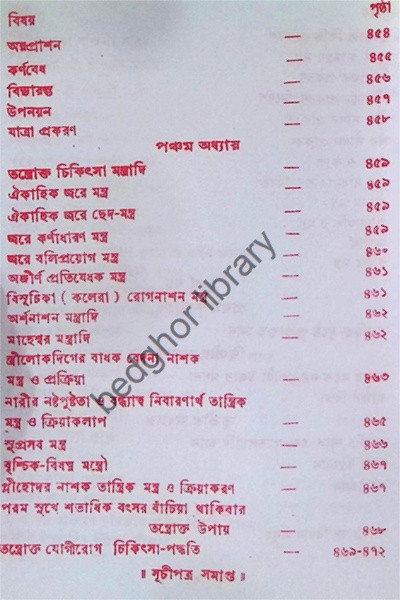 বিষয় পৃষ্ঠা
অন্নপ্রাশন — ৪৫৪
কর্ণবেধ — ৪৫৫
বিদ্যারম্ভ — ৪৫৬
উপনয়ন — ৪৫৭
যাত্রা প্রকরণ — ৪৫৮
পঞ্চম অধ্যায়
তন্ত্রোক্ত চিকিৎসা মন্ত্রাদি — ৪৫৯
ঐকাহিক জ্বরে মন্ত্র — ৪৫৯
ঐকাহিক জ্বরে ছেদ-মন্ত্র — ৪৫৯
জ্বরে কর্ণধারণ মন্ত্র — ৪৫৯
জ্বরে বলিপ্রয়োগ মন্ত্র — ৪৬০
অজীর্ণ প্রতিষেধক মন্ত্র — ৪৬১
বিসূচিকা ( কলেরা ) রোগনাশন মন্ত্র — ৪৬১
অর্শনাশন মন্ত্রাদি — ৪৬২
মাহেশ্বর মন্ত্রাদি — ৪৬২
স্ত্রীলোকদিগের বাধক বেদনা নাশক
মন্ত্র ও প্রক্রিয়া — ৪৬৩
নারীর নষ্টপুষ্টতা ও বন্ধ্যাত্ব নিবারণার্থ তান্ত্রিক
মন্ত্র ও ক্রিয়াকলাপ — ৪৬৫
সুপ্রসব মন্ত্র — ৪৬৬
বৃশ্চিক-বিষঘ্ন মন্ত্রৌ — ৪৬৭
প্লীহোদর নাশক তান্ত্রিক মন্ত্র ও ক্রিয়াকরণ — ৪৬৭
পরম সুখে শতাধিক বৎসর বাঁচিয়া থাকিবার
তন্ত্রোক্ত উপায় — ৪৬৮
তন্ত্রোক্ত যোগীরোগ চিকিৎসা-পদ্ধতি — ৪৬৯-৪৭২
॥ সূচীপত্র সমাপ্ত ॥
bedghor library